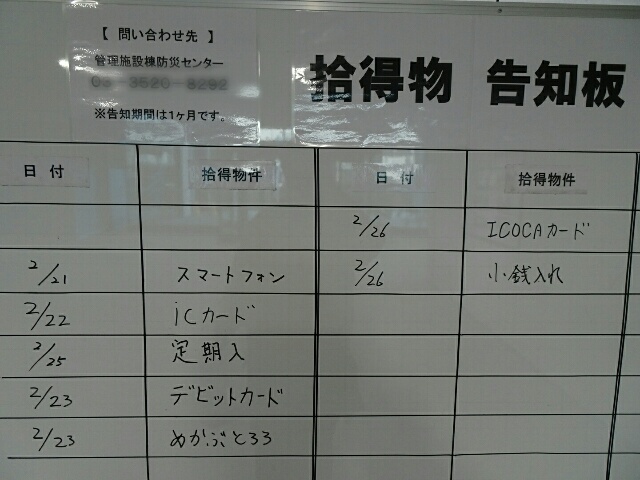 【 問い合わせ先 】
管理施設棟防災センター
※告知期間は1ヶ月です。
拾得物 告知板
日 付 拾得物件 日 付 拾得物件
2/26 ICOCAカード
2/21 スマートフォン 2/26 小銭入れ
2/22 icカード
2/25 定期入
2/23 デビットカード
2/23 めかぶとろろ